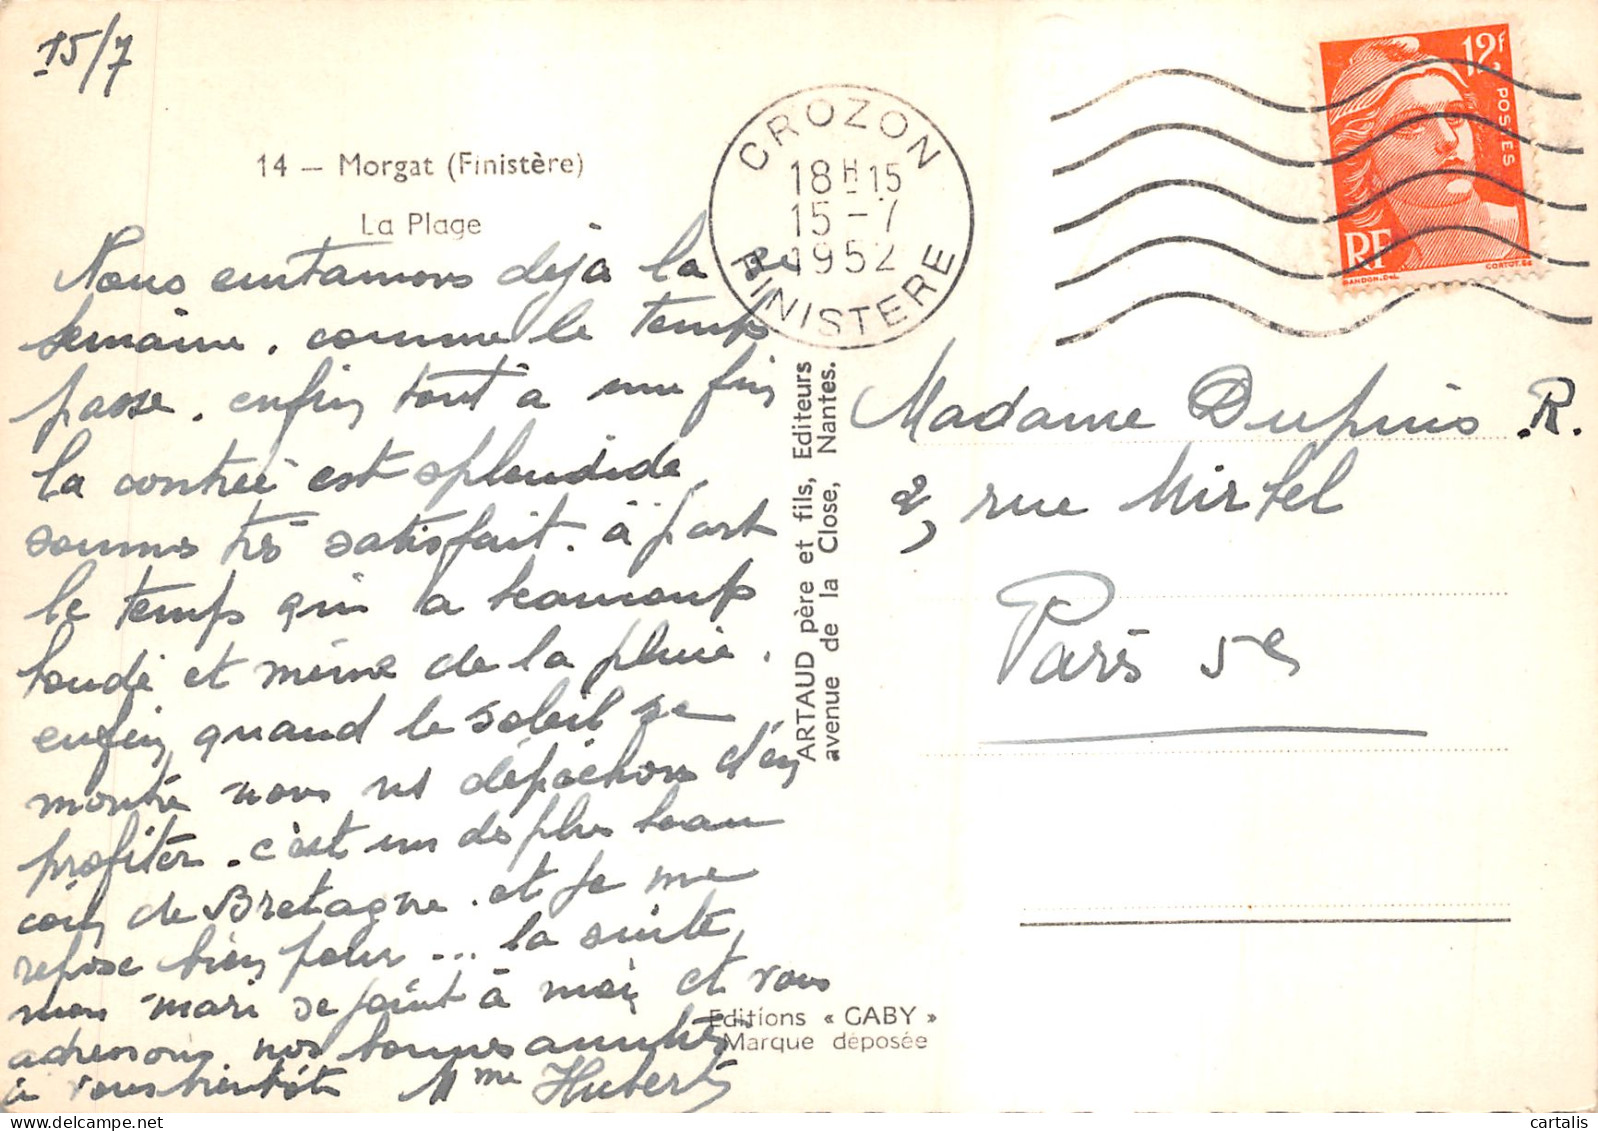 15/7
14 – Morgat (Finistère)
La Plage
Nous entamons déjà la 2e
semaine. comme le temps
passe. enfin tout à une fin
la contrée est splendide
sommes très satisfait. à part
le temps qui a beaucoup
boudé et même de la pluie.
enfin quand le soleil se
montre nous ns dépêchons d'en
profiter. c'est un des plus beau
coin de Bretagne. et je me
repose bien pour ... la suite,
mon mari se joint à moi et vous
adressons nos bonnes amitiés
à vous bientôt Mme Hubert
CROZON
18H15
15-7
1952
FINISTERE
12f
POSTES
RF
GANDON.DEL
CORTOT.SC
ARTAUD père et fils, Editeurs
avenue de la Close, Nantes.
Madame Dupuis R.
2, rue Mirbel
Paris 5e
Editions « GABY »
Marque déposée
cartalis
delcampe.net